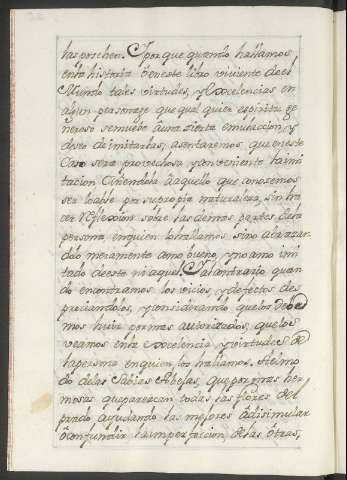 las prochen. Y porque quando hallamos
en la historia ô en este libro viviente de el
Mundo tales virtudes, y Excelencias en
algun personaje que qual quier espiritu ge
neroso se muebe âuna sierta emulaccion, y
deseo de imitarlas; asentaremos que en este
Caso sera provechosa y conveniente la imi
tacion Ciñendola âaquello que conosemos
ser loable por su propia naturaleza, sin ha
cer Reflexion sobre las demas partes de la
persona en quien lo hallamos, sino abrazar
dolo meramente como bueno, y no como imi
tado de este ni aquel. Y al contrario quan
do encontramos los vicios, y defectos des
preciandolos, y considerando que los debe
mos huir por mas autorizados, que los
veamos entre excelencia y virtudes de
la persona en quien los hallamos. Al mo
do de las Sabias Abejas, que por mas her
mosas que parescan todas las flores del
prado, ayudando las mejores âdisimular
ô confundir la imperfeicion, de las ôtras,